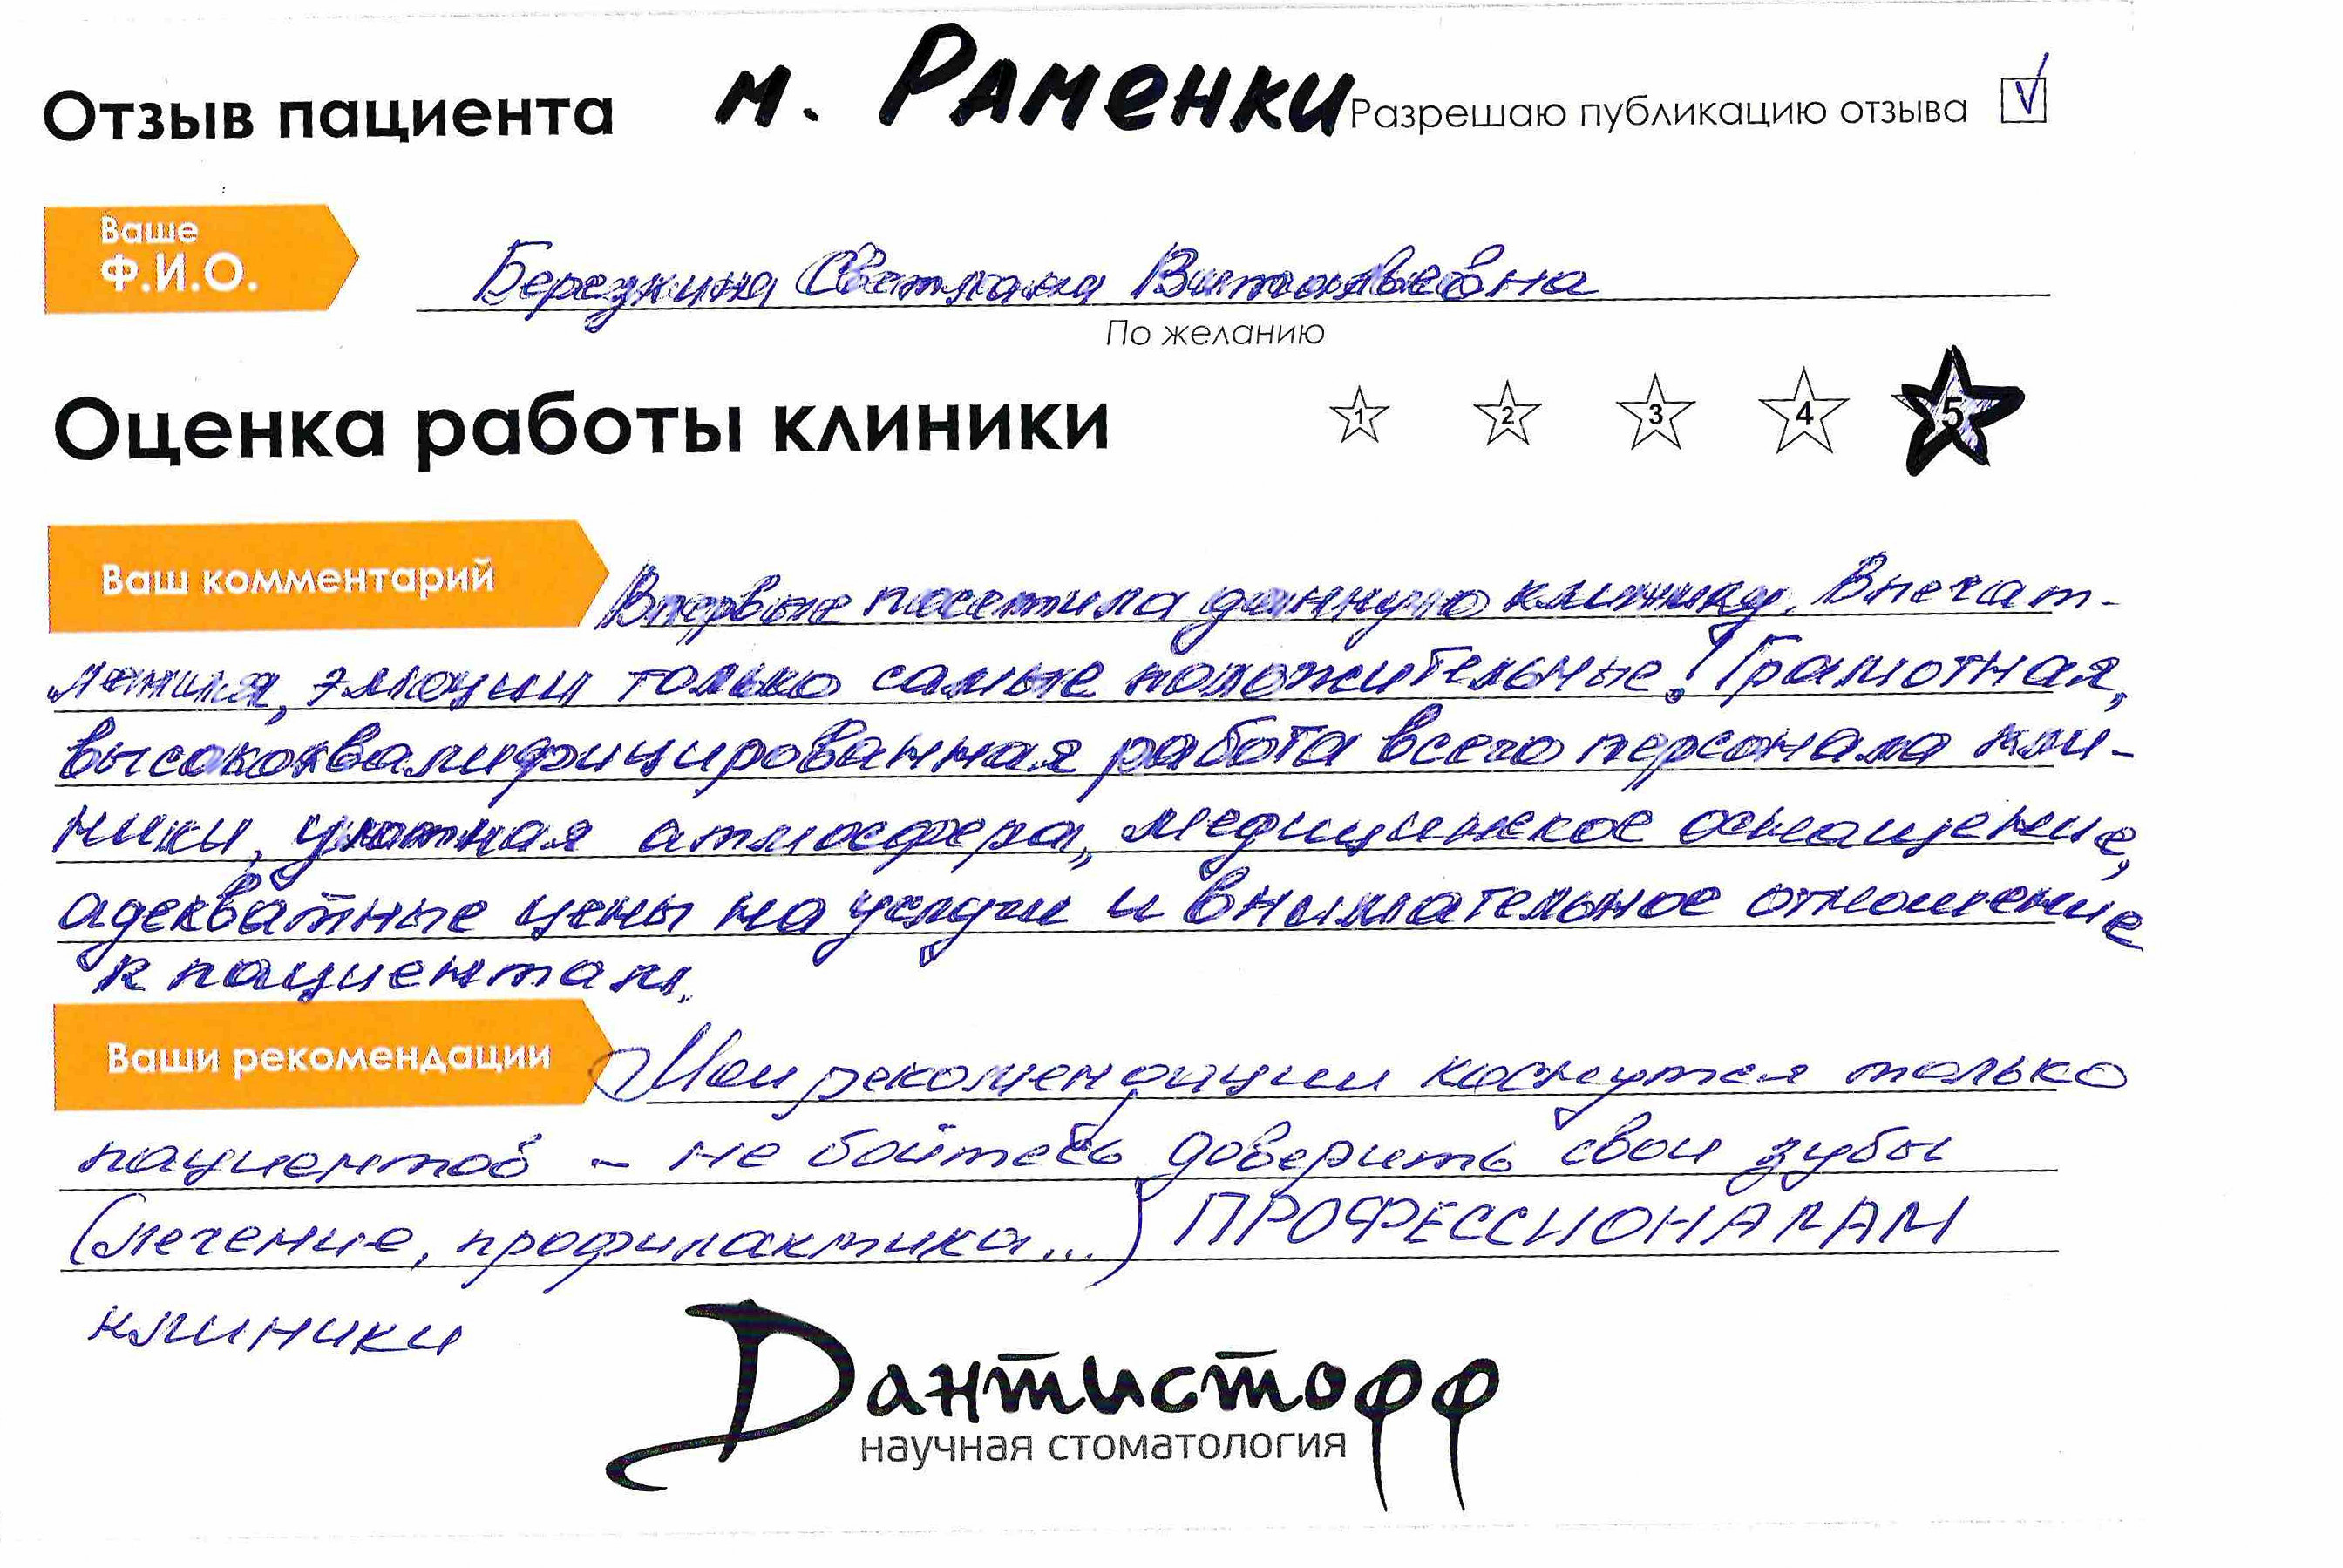 Отзыв пациента м. Раменки Разрешаю публикацию отзыва
Ваше
Ф.И.О.
Бережкина Светлана Витальевна
По желанию
Оценка работы клиники 1 2 3 4 5
Ваш комментарий Впервые посетила данную клинику. Впечат-
ления, эмоции только самые положительные! Грамотная,
высококвалифицированная работа всего персонала кли-
ники, уютная атмосфера, медицинское оснащение,
адекватные цены на услуги и внимательное отношение
к пациентам.
Ваши рекомендации Мои рекомендации коснутся только
пациентов - не бойтесь доверить свои зубы
(лечение, профилактика...) ПРОФЕССИОНАЛАМ
клиники
Дантистофф
научная стоматология